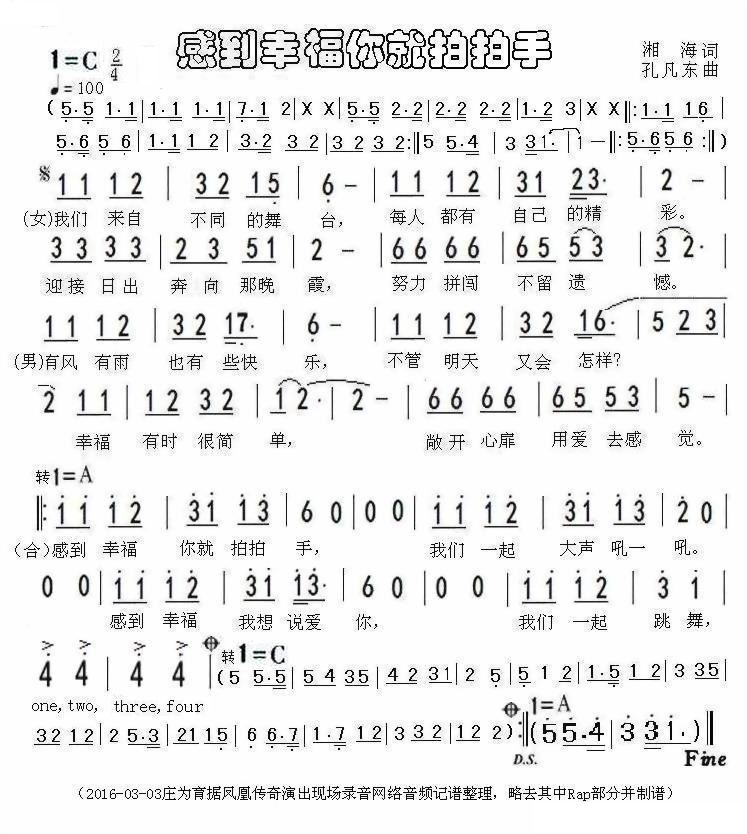 感到幸福你就拍拍手
1=C 2/4
♩=100
湘 海 词
孔凡东 曲
( 5·5 1·1 | 1·1 1·1 | 7·1 2 | X X | 5·5 2·2 | 2·2 2·2 | 1·2 3 | X X ‖: 1·1 1 6 |
5·6 5·6 | 1·1 1 2 | 3·2 3 2 | 3 2 3 2 :‖ 5 5·4 | 3 3 1· | 1 — ‖: 5·6 5 6 :‖ )
1 1 1 2 | 3 2 1 5 | 6 - | 1 1 1 2 | 3 1 2 3· | 2 - |
(女)我们 来自 不同 的舞 台, 每人 都有 自己 的精 彩。
3 3 3 3 | 2 3 5 1 | 2 - | 6 6 6 6 | 6 5 5 3 | 3 2· |
迎接 日出 奔 向 那晚 霞, 努力 拼闯 不留 遗 憾。
1 1 1 2 | 3 2 1 7· | 6 - | 1 1 1 2 | 3 2 1 6· | 5 2 3 |
(男)有风 有雨 也有 些快 乐, 不管 明天 又会 怎样?
2 1 1 | 1 2 3 2 | 1 2· | 2 - | 6 6 6 6 | 6 5 5 3 | 5 - |
幸福 有时 很简 单, 敞开 心扉 用爱 去感 觉。
转1=A
‖: 1 1 1 2 | 3 1 1 3 | 6 0 | 0 0 | 1 1 1 2 | 3 1 1 3 | 2 0 |
(合)感到 幸福 你就 拍拍 手, 我们 一起 大声 吼一 吼。
0 0 | 1 1 1 2 | 3 1 1 3· | 6 0 | 0 0 | 1 1 1 2 | 3 1 |
感到 幸福 我想 说爱 你, 我们 一起 跳 舞,
4 4 | 4 4 | 转1=C (5 5·5 | 5 4 3 5 | 4 2 3 1 | 2 5 | 5 1 2 | 1·5 1 2 | 3 5 |
one,two, three,four
3 2 1 2 | 2 5·3 | 2 1 1 5 | 6 6·7 | 1·7 1 2 | 3 3 2 | 1 2 ) :‖ 1=A ( 5 5·4 | 3 3 1· ) ‖
D.S. Fine
(2016-03-03庄为育据凤凰传奇演出现场录音网络音频记谱整理，略去其中Rap部分并制谱)